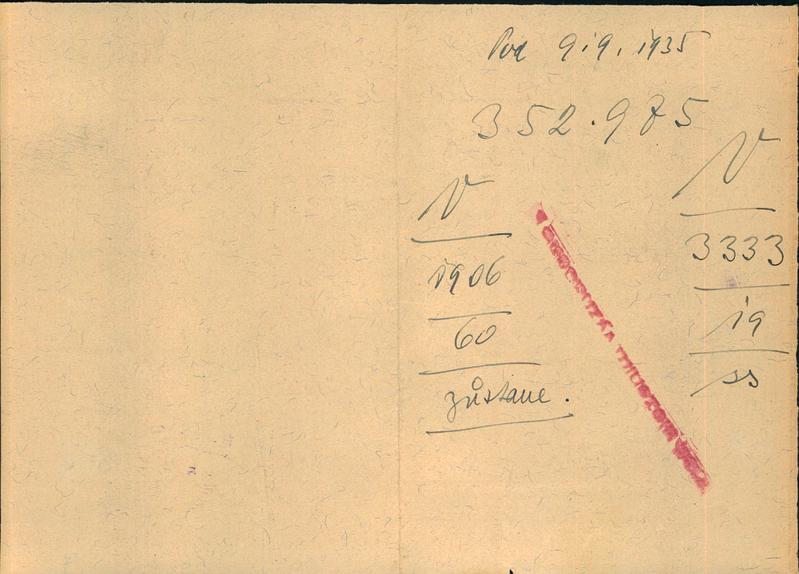 9.9. 1935
352.975
V
1906
60
zůstane.
V
3333
19
ss